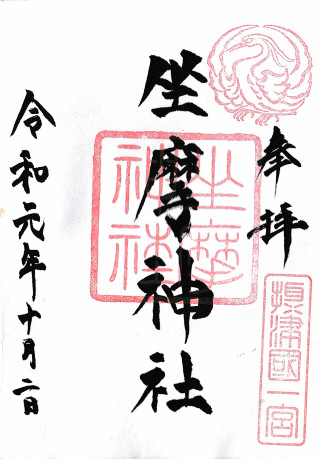 奉拝
摂津國一宮
坐摩神社
坐摩
神社
令和元年十月二日